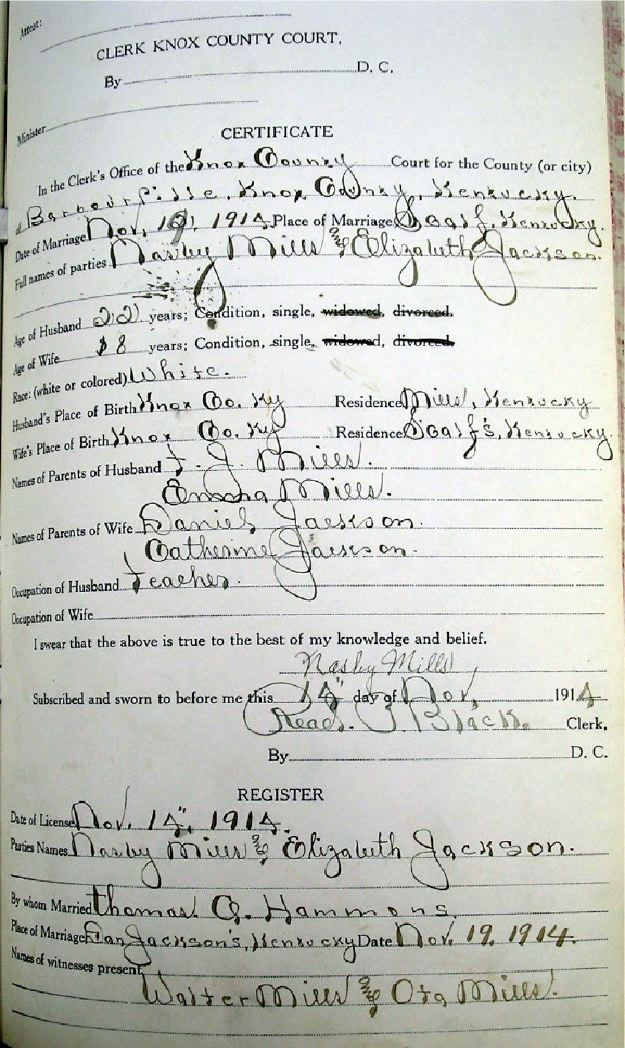 Attest:
CLERK KNOX COUNTY COURT.
By D. C.
Minister
CERTIFICATE
In the Clerk's Office of the Knox County Court for the County (or city)
Barbourville, Knox County, Kentucky.
Date of Marriage Nov. 19, 1914. Place of Marriage Scalf, Kentucky.
Full names of parties Nasby Mills & Elizabeth Jackson.
Age of Husband 22 years; Condition, single, widowed, divorced.
Age of Wife 18 years; Condition, single, widowed, divorced.
Race: (white or colored) White.
Husband's Place of Birth Knox Co. Ky Residence Mills, Kentucky
Wife's Place of Birth Knox Co. Ky Residence Scalf's, Kentucky.
Names of Parents of Husband J. Mills.
Emma Mills.
Names of Parents of Wife Daniel Jackson.
Catherine Jackson.
Occupation of Husband Teacher.
Occupation of Wife
I swear that the above is true to the best of my knowledge and belief.
Nasby Mills
Subscribed and sworn to before me this 14" day of Nov. 1914
Read P. Black. Clerk,
By D. C.
REGISTER
Date of License Nov. 14", 1914.
Parties Names Nasby Mills & Elizabeth Jackson.
By whom Married Thomas Hammons.
Place of Marriage Dan Jackson's, Kentucky Date Nov. 19, 1914.
Names of witnesses present
Walter Mills & Ota Mills.